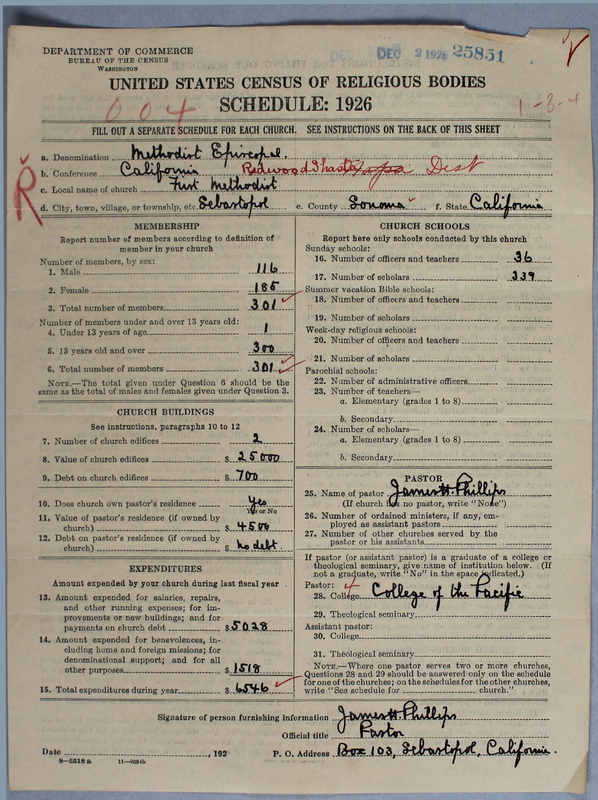 DEPARTMENT OF COMMERCE
BUREAU OF THE CENSUS
WASHINGTON
DEC 2 1926 25851
UNITED STATES CENSUS OF RELIGIOUS BODIES
SCHEDULE: 1926
004
1-3-4
FILL OUT A SEPARATE SCHEDULE FOR EACH CHURCH. SEE INSTRUCTIONS ON THE BACK OF THIS SHEET
a. Denomination Methodist Episcopal.
b. Conference California Redwood Shasta Dist
c. Local name of church First Methodist
d. City, town, village, or township, etc. Sebastopol e. County Sonoma f. State California
MEMBERSHIP
Report number of members according to definition of
member in your church
Number of members, by sex:
1. Male 116
2. Female 185
3. Total number of members 301
Number of members under and over 13 years old:
4. Under 13 years of age 1
5. 13 years old and over 300
6. Total number of members 301
NOTE.—The total given under Question 6 should be the
same as the total of males and females given under Question 3.
CHURCH BUILDINGS
See instructions, paragraphs 10 to 12
7. Number of church edifices 2
8. Value of church edifices $ 25000
9. Debt on church edifices $ 700
10. Does church own pastor's residence Yes
Yes or No
11. Value of pastor's residence (if owned by
church) $ 4500
12. Debt on pastor's residence (if owned by
church) $ no debt
EXPENDITURES
Amount expended by your church during last fiscal year
13. Amount expended for salaries, repairs,
and other running expenses; for im-
provements or new buildings; and for
payments on church debt $ 5028
14. Amount expended for benevolences, in-
cluding home and foreign missions; for
denominational support; and for all
other purposes $ 1518
15. Total expenditures during year $ 6546
CHURCH SCHOOLS
Report here only schools conducted by this church
Sunday schools:
16. Number of officers and teachers 36
17. Number of scholars 339
Summer vacation Bible schools:
18. Number of officers and teachers
19. Number of scholars
Week-day religious schools:
20. Number of officers and teachers
21. Number of scholars
Parochial schools:
22. Number of administrative officers
23. Number of teachers—
a. Elementary (grades 1 to 8)
b. Secondary
24. Number of scholars—
a. Elementary (grades 1 to 8)
b. Secondary
PASTOR
25. Name of pastor James H. Phillips
(If church has no pastor, write "None")
26. Number of ordained ministers, if any, em-
ployed as assistant pastors
27. Number of other churches served by the
pastor or his assistants
If pastor (or assistant pastor) is a graduate of a college or
theological seminary, give name of institution below. (If
not a graduate, write "No" in the space indicated.)
Pastor:
28. College College of the Pacific
29. Theological seminary
Assistant pastor:
30. College
31. Theological seminary
NOTE.—Where one pastor serves two or more churches,
Questions 28 and 29 should be answered only on the schedule
for one of the churches; on the schedules for the other churches,
write "See schedule for church."
Signature of person furnishing information James H. Phillips
Official title Pastor
Date , 192 P. O. Address Box 103, Sebastopol, California.
8—5518 a